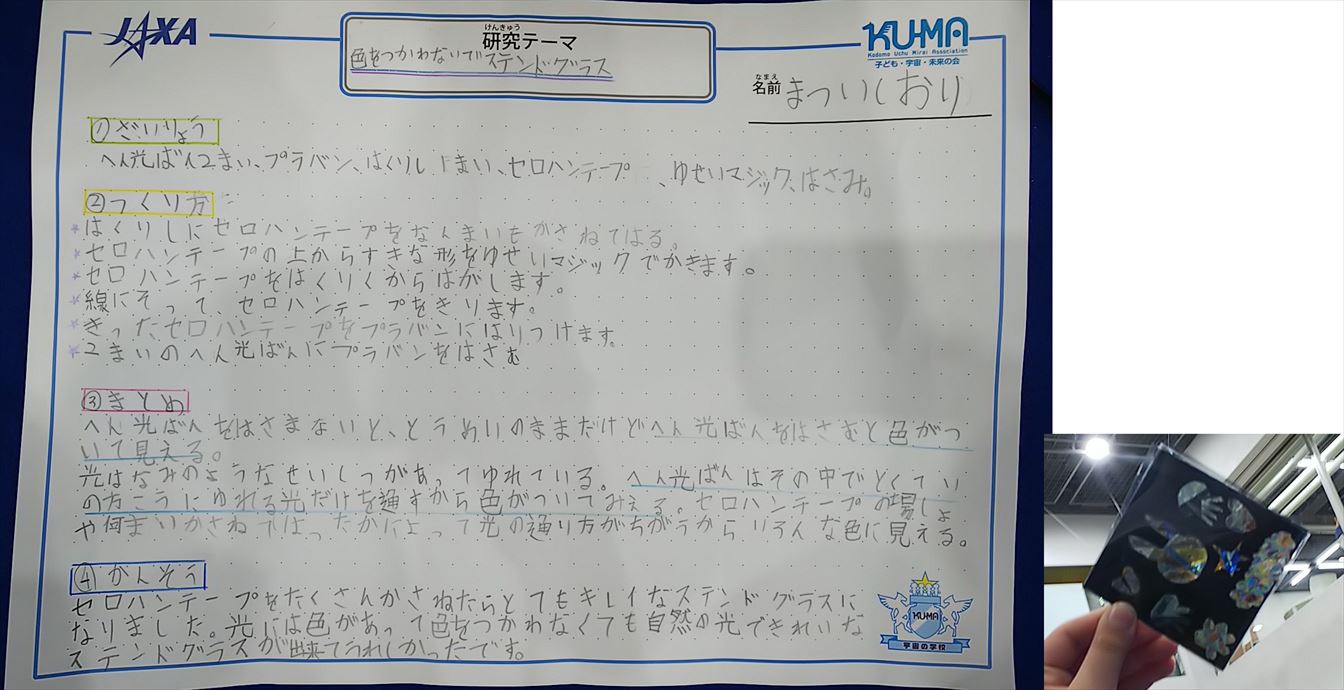 JAXA
けんきゅう
研究テーマ
色をつかわないでステンドグラス
KU-MA
Kodomo Uchu Mirai Association
子ども・宇宙・未来の会
なまえ
名前 まついしおり
①ざいりょう
へん光ばん2まい、プラバン、はくりし1まい、セロハンテープ、ゆせいマジック、はさみ。
②つくり方
*はくりしにセロハンテープをなんまいもかさねてはる。
*セロハンテープの上からすきな形をゆせいマジックでかきます。
*セロハンテープをはくりくからはがします。
*線にそって、セロハンテープをきります。
*きったセロハンテープをプラバンにはりつけます。
*2まいのへん光ばんにプラバンをはさむ
③まとめ
へん光ばんをはさまないと、とうめいのままだけどへん光ばんをはさむと色がつ
いて見える。
光はなみのようなせいしつがあってゆれている。へん光ばんはその中でとくてい
の方こうにゆれる光だけを通すから色がついてみえる。セロハンテープの場しょ
や何まいかさねてはったかによって光の通り方がちがうからいろんな色に見える。
④かんそう
セロハンテープをたくさんかさねたらとてもキレイなステンドグラスに
なりました。光には色があって色をつかわなくても自然の光できれいな
ステンドグラスが出来てうれしかったです。
KU-MA
宇宙の学校